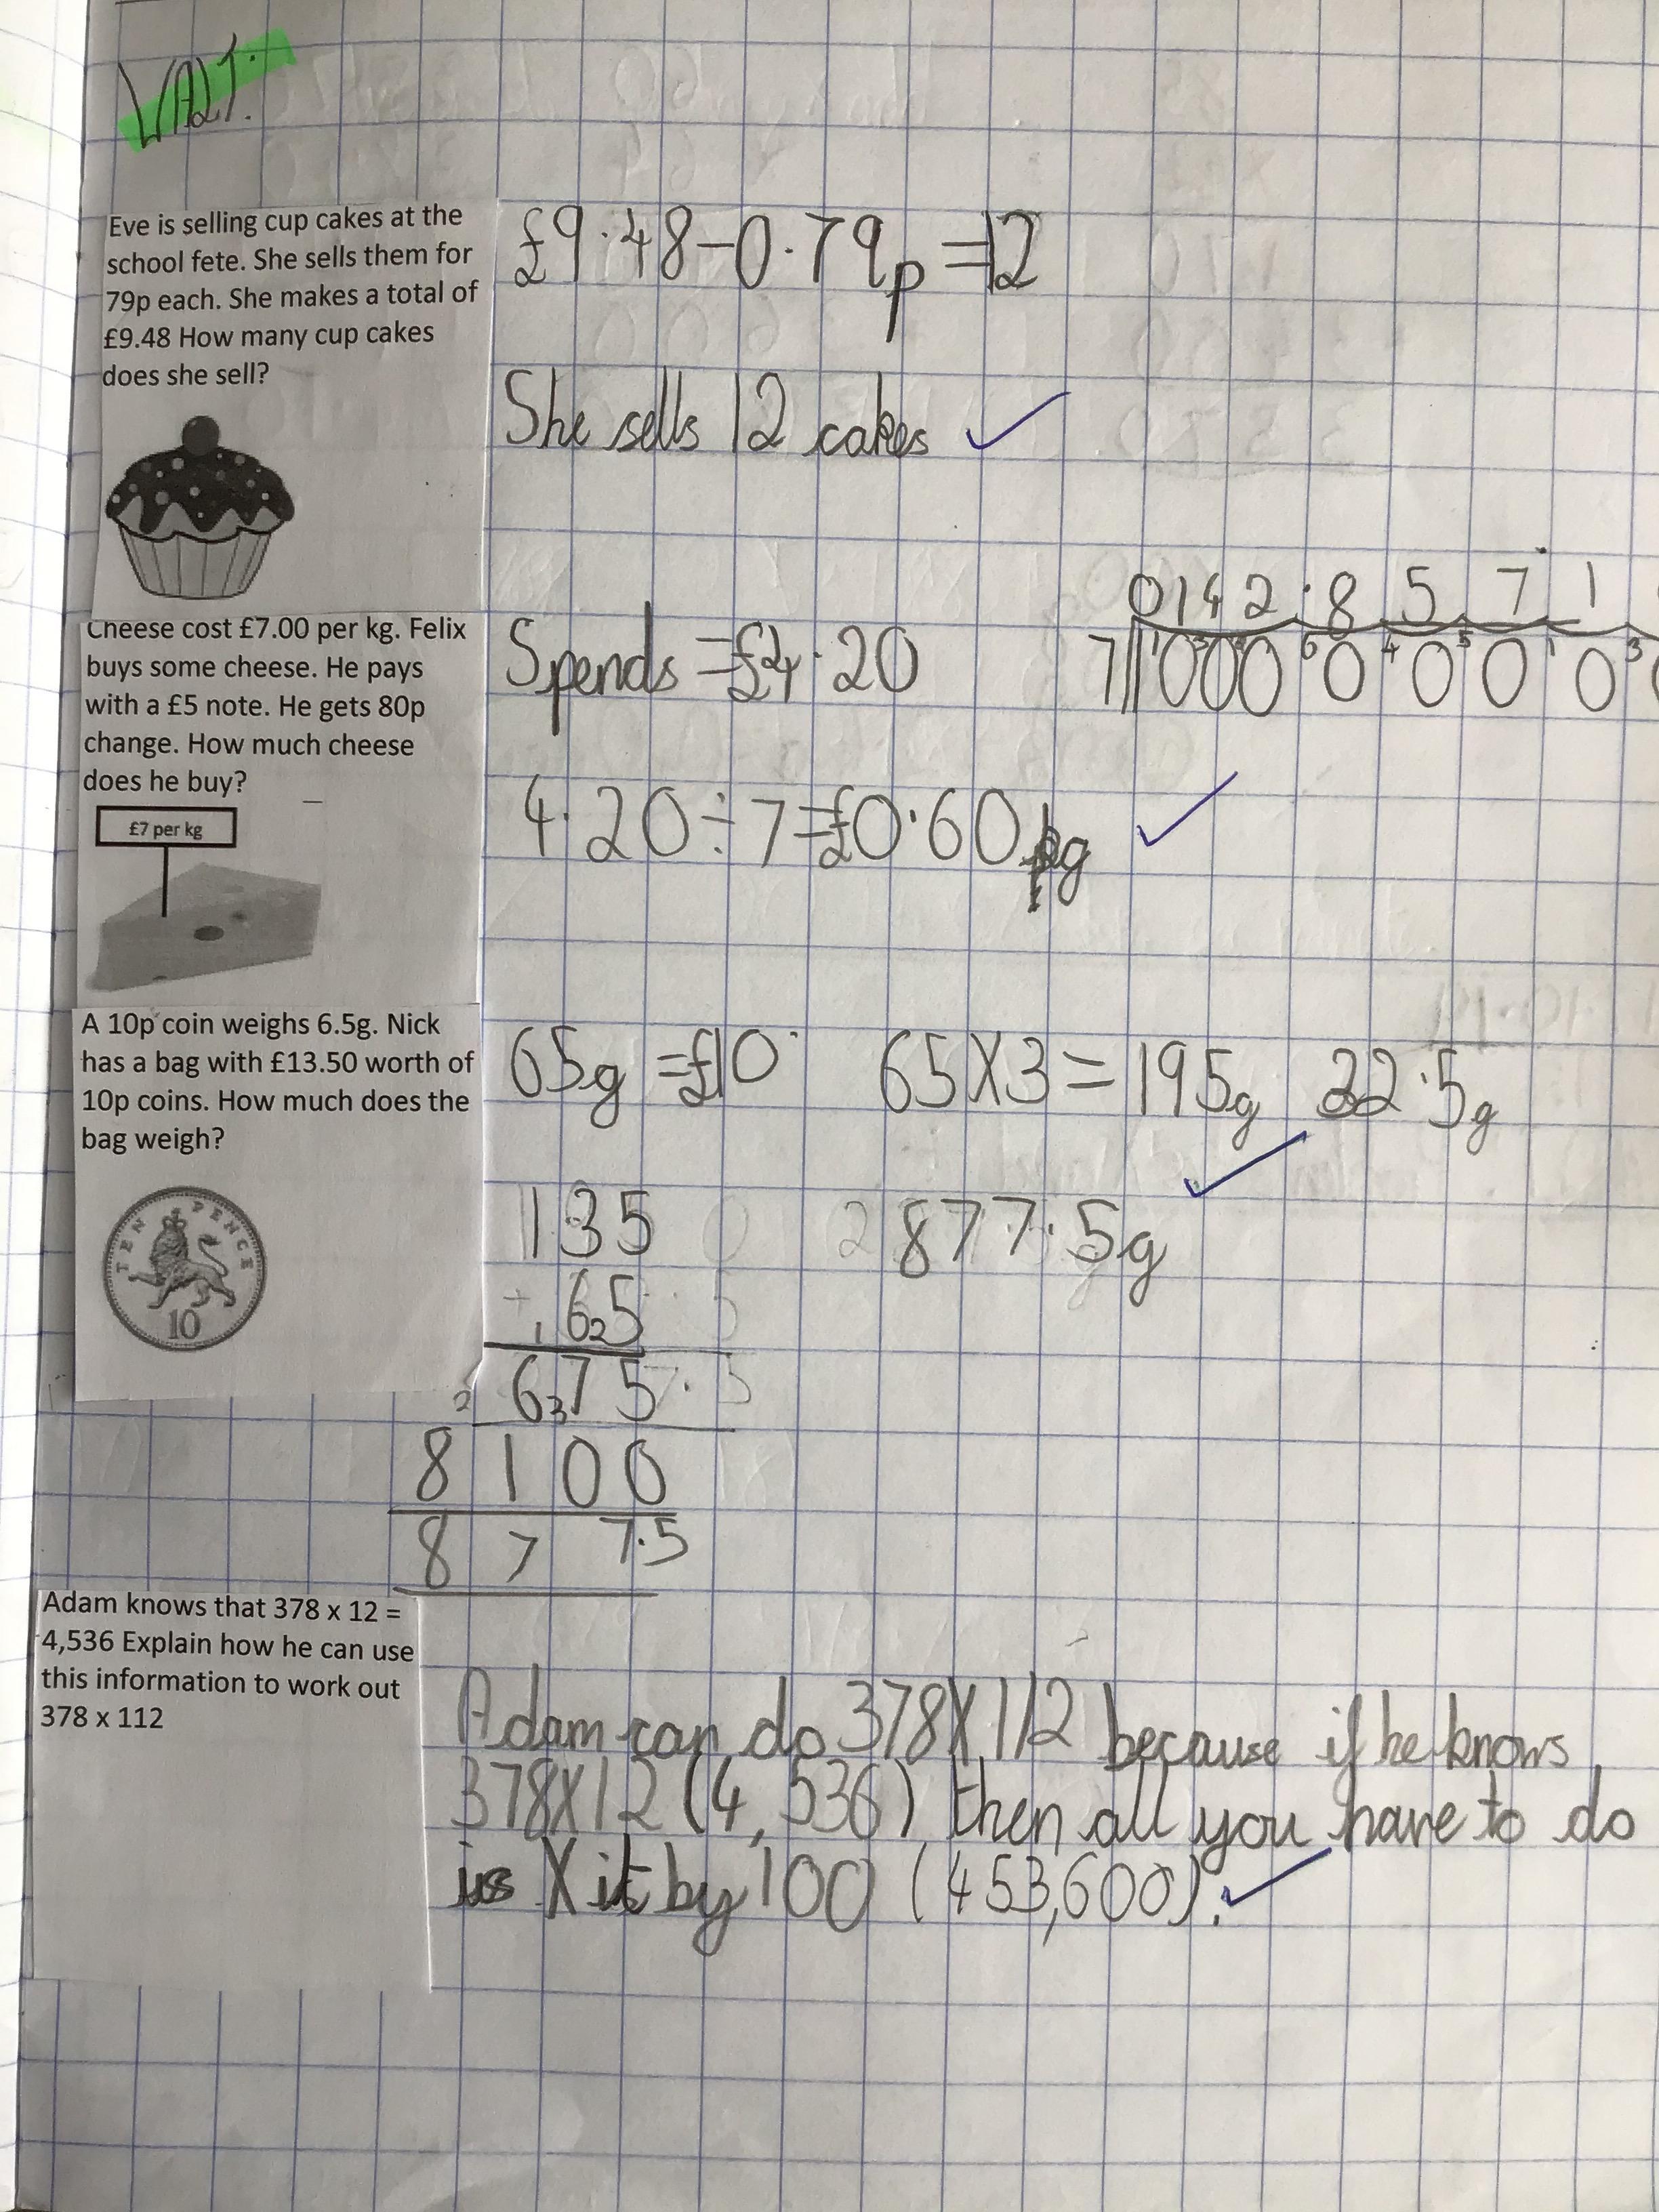 WALT:
Eve is selling cup cakes at the
school fete. She sells them for
79p each. She makes a total of
£9.48 How many cup cakes
does she sell?
£9.48-0.79p=12
She sells 12 cakes
Cheese cost £7.00 per kg. Felix
buys some cheese. He pays
with a £5 note. He gets 80p
change. How much cheese
does he buy?
£7 per kg
Spends =£4.20
0142.8571
7 1000 0000
4.20÷7=£0.60 kg
A 10p coin weighs 6.5g. Nick
has a bag with £13.50 worth of
10p coins. How much does the
bag weigh?
TEN PENCE
10
65g =£10 65X3=195g 22.5g
135 877.5g
65
675
8100
877.5
Adam knows that 378 x 12 =
4,536 Explain how he can use
this information to work out
378 x 112
Adam can do 378X112 because if he knows
378X12 (4,536) then all you have to do
is X it by 100 (453,600).